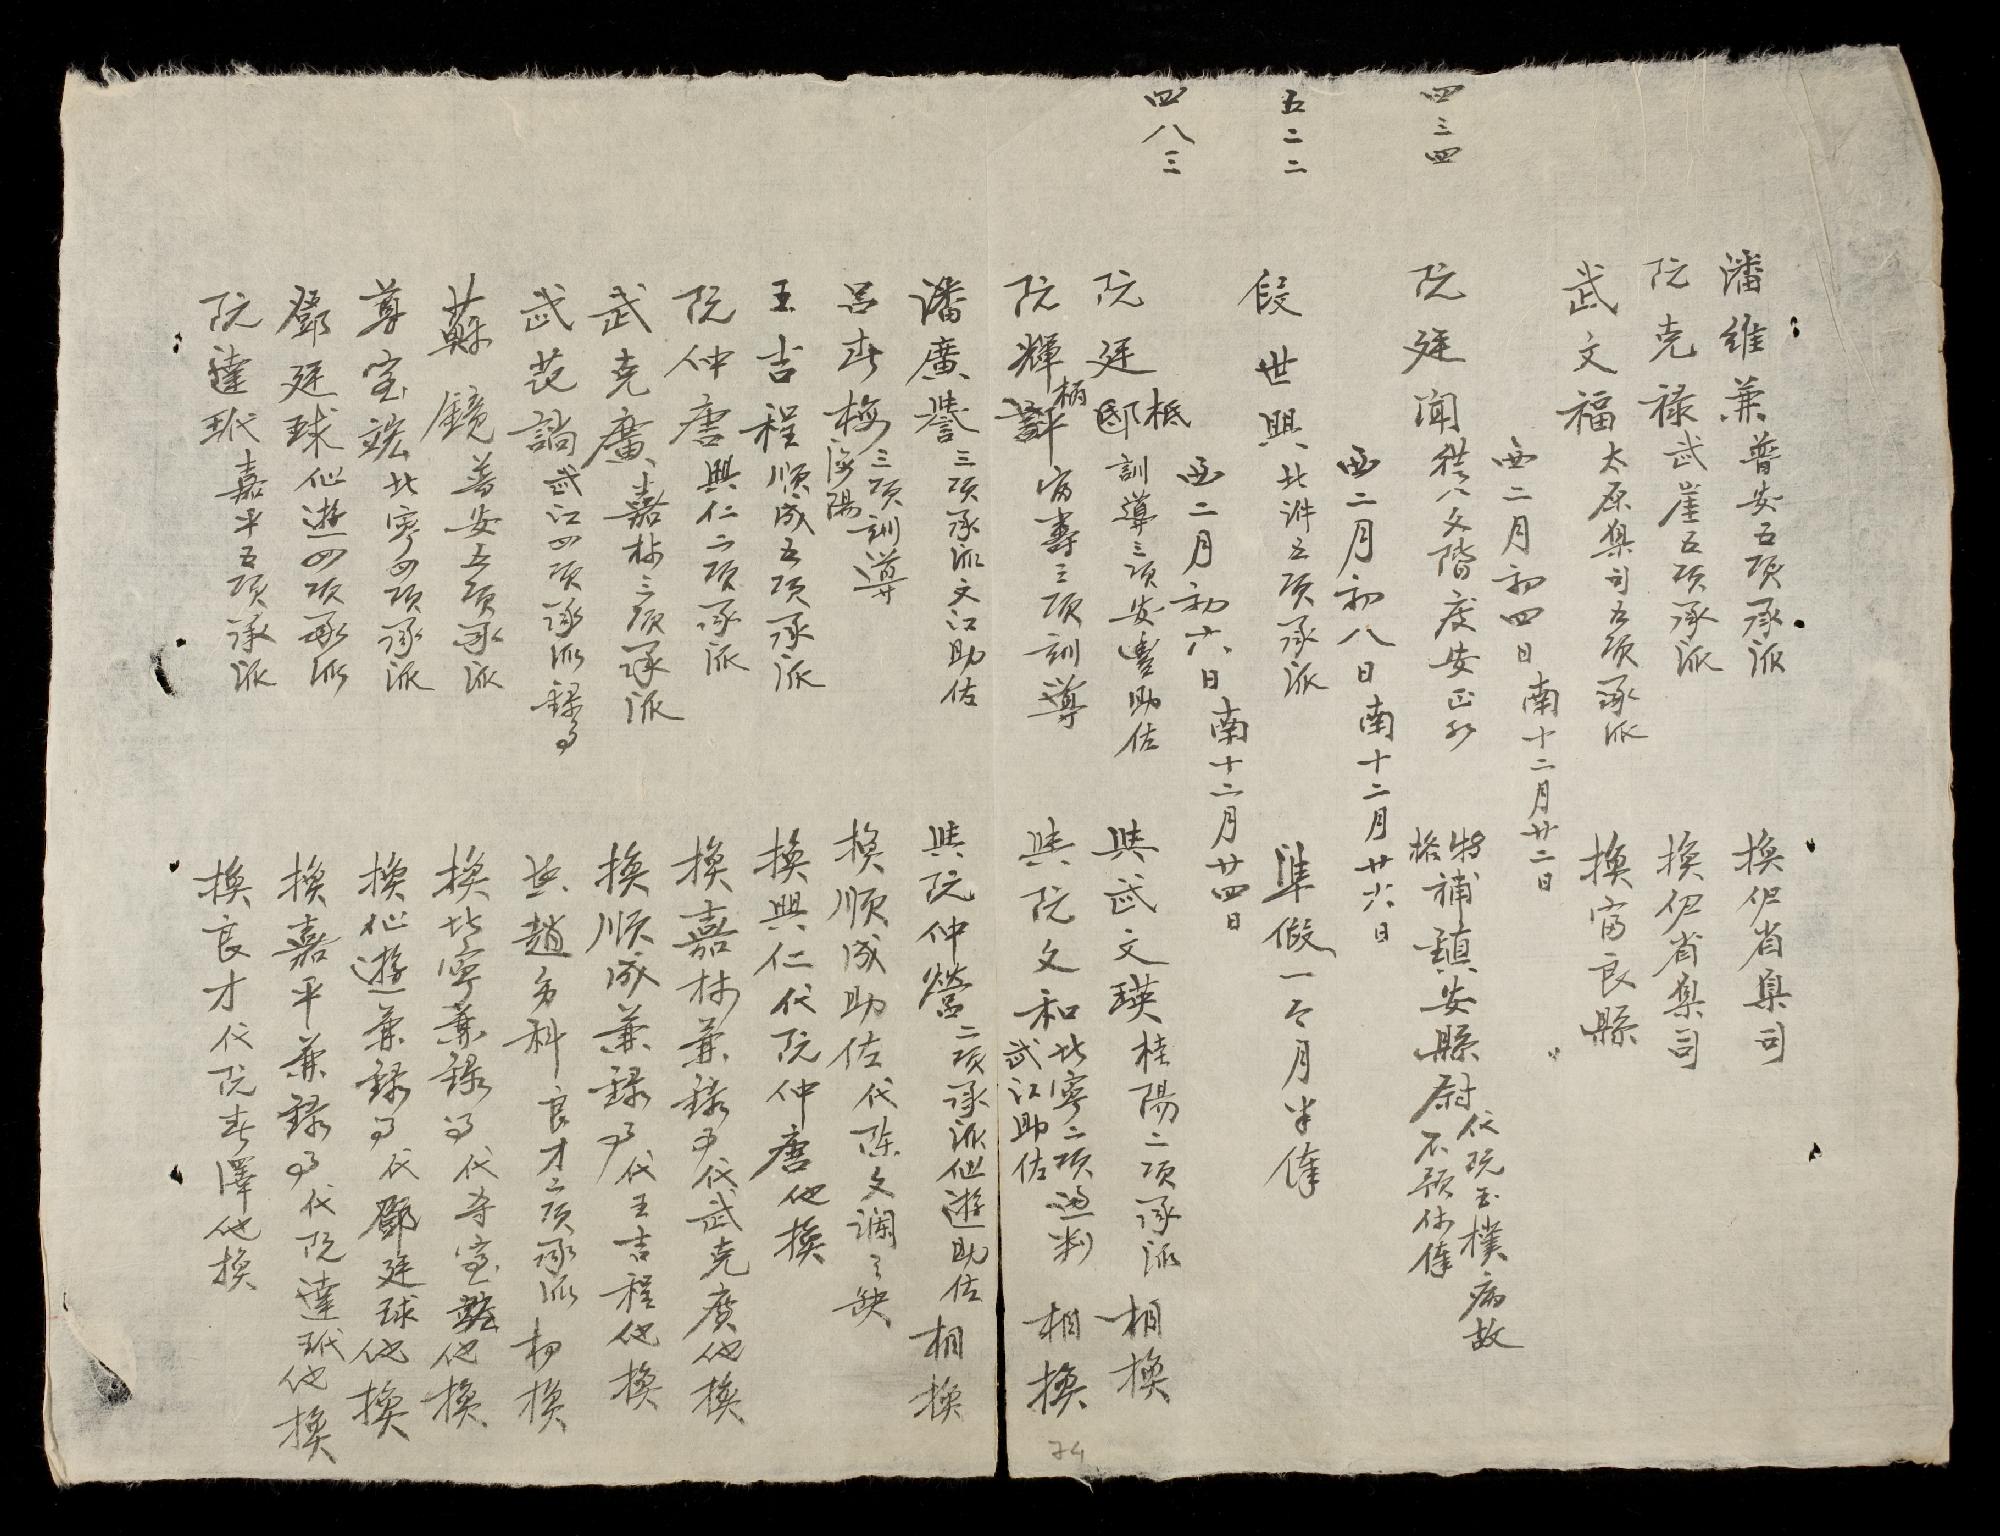 潘維兼 普安五項承派 換伊省臬司
阮克祿 武崖五項承派 換伊省臬司
武文福 太原臬司五項承派 換富良縣
西二月初四日南十二月廿二日
四三四
阮廷聞 從八文階 安 特格補鎮安縣尉 代阮玉樸病故不預 俸
西二月初八日南十二月廿六日
五二二
段世興 北 五項承派 準假一个月半俸
西二月初六日南十二月廿四日
四八三
阮廷邸 柢 訓導三項安豐助佐 與武文瑛 桂陽二項承派 相換
阮輝 柄 壽三項訓導 與阮文和 北寧二項通判 武江助佐 相換
潘廣譽 三項承派文江助佐 與阮仲營 二項承派仙遊助佐 相換
呂春梅 三項訓導 海陽 換順成助佐代陳文瀾之缺
王吉程 順成五項承派 換興仁代阮仲唐他換
阮仲唐 興仁二項承派 換嘉林兼錄事代武克廣他換
武克廣 嘉林三項承派 換順成兼錄事代王吉程他換
武范調 武江四項承派錄事 與趙多科 良才二項承派 相換
蘇鏡 普安五項承派 換北寧兼錄事代尊室 他換
尊室 北寧四項承派 換仙遊兼錄事代鄧廷球他換
鄧廷球 仙遊四項承派 換嘉平兼錄事代阮達玳他換
阮達玳 嘉平五項承派 換良才代阮春澤他換
74